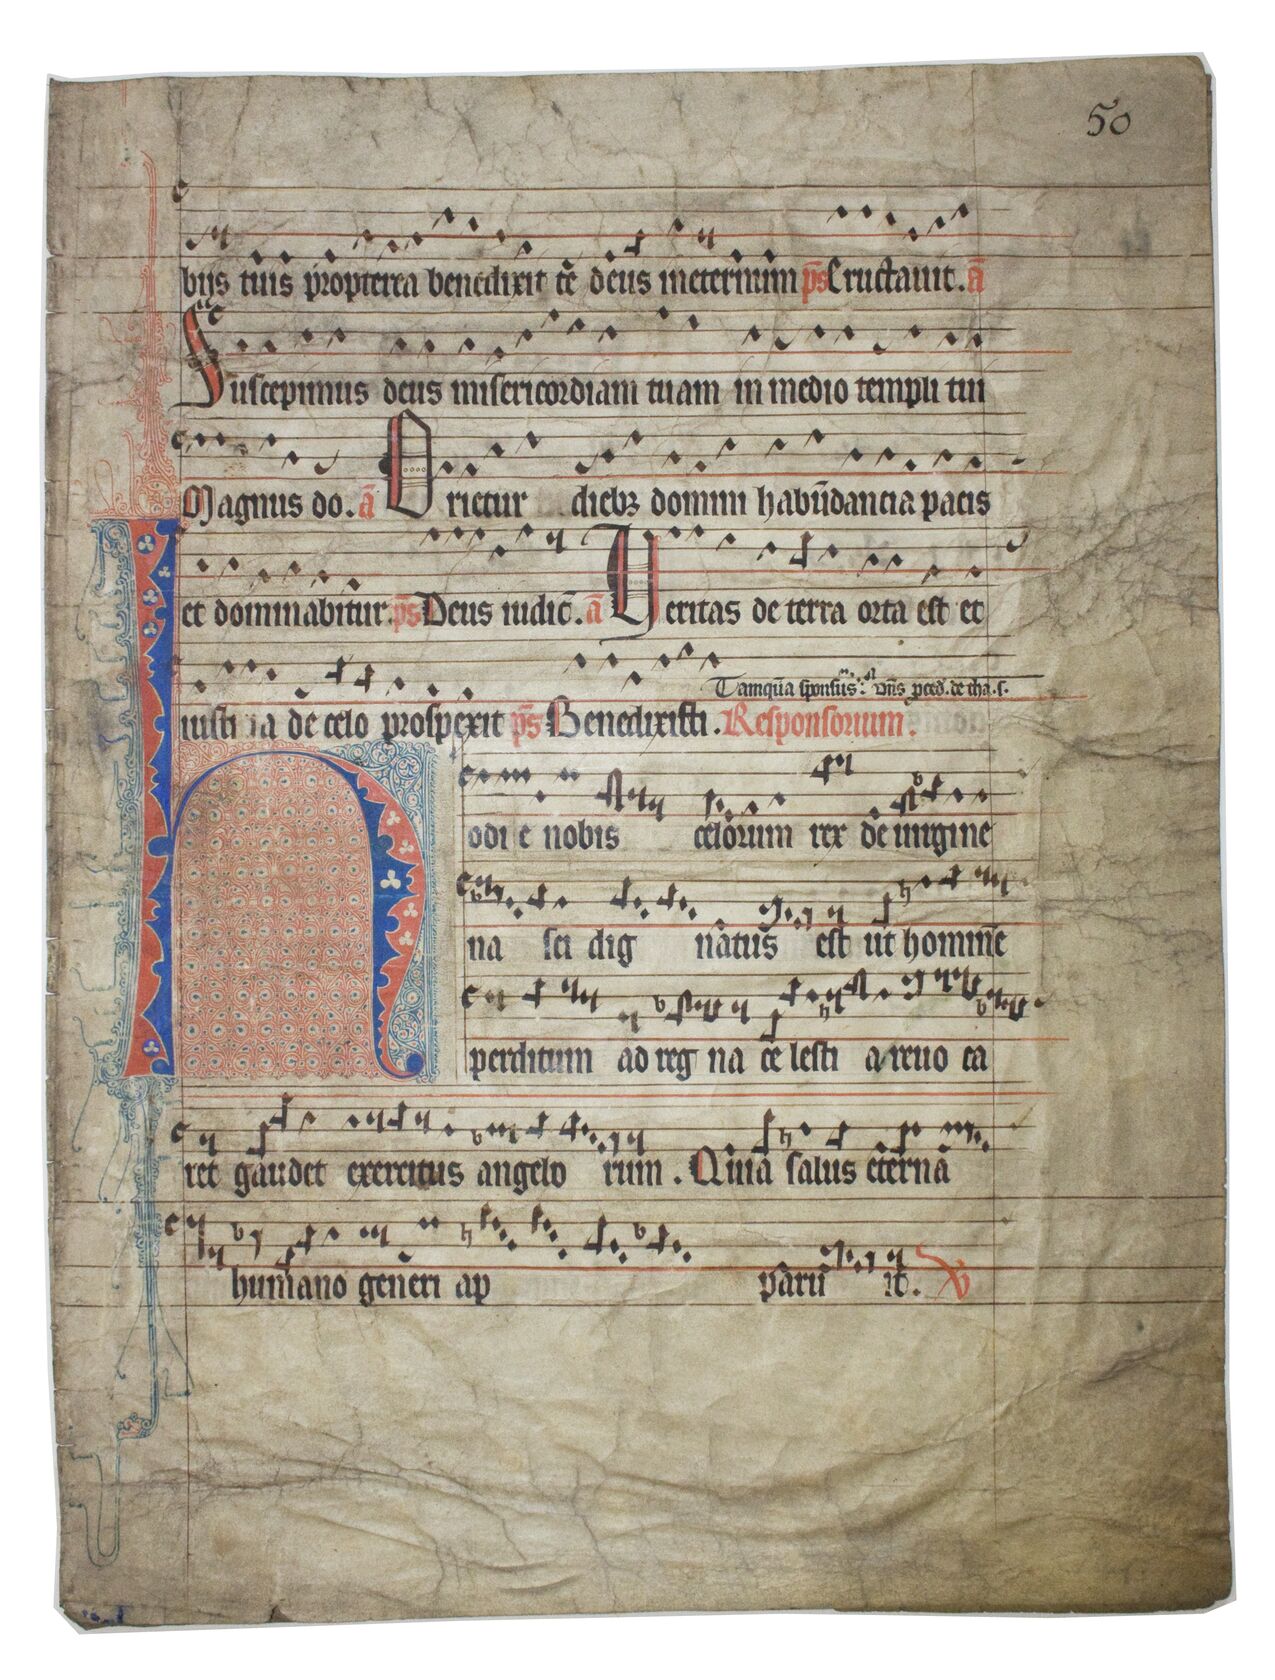 50
bijs tuis propterea benedixit te deus ineternum p̄s Eructauit. ā
Suscepimus deus misericordiam tuam in medio templi tui
Magnus do. ā Orietur diebꝫ domini habūdancia pacis
et dominabitur p̄s Deus iudic̄. ā Ueritas de terra orta est et
Tamquā sponsus. v̄us
iusticia de celo prospexit p̄s Benedixisti. Responsorium.
Hodie nobis celorum rex de uirgine
na sci dig natus est ut homine
perditum ad reg na ce lesti a reuo ca
ret gaudet exercitus angelo rum. Quia salus eterna
humano generi ap paru it. V